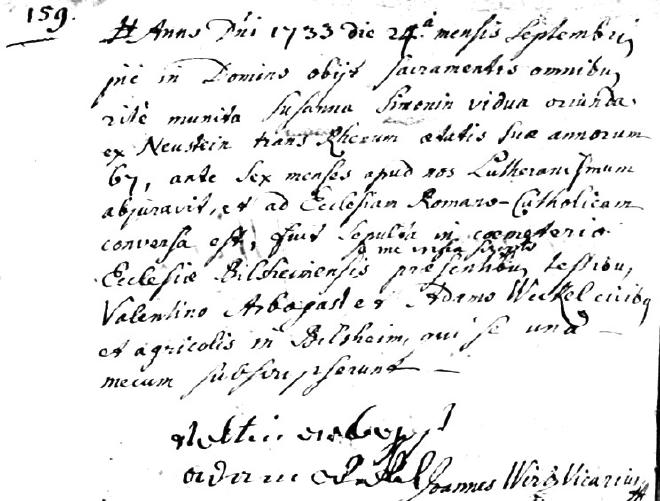 159.
Anno Dni 1733 die 24.a mensis Septembris
pie in Domino obijt sacramentis omnibus
ritè munita Susanna Simonin vidua oriunda
ex Neustein trans Rhenum ætatis suæ annorum
67, ante sex menses apud nos Lutheranismum
abjuravit, et ad Ecclesiam Romano-Catholicam
conversa est, fuit sepulta in coemeterio
a me infra scripto
Ecclesiæ Bilsheimensis præsentibus testibus
Valentino Arbogast et Adamo Weckel civibus
et agricolis in Bilsheim, qui se unà
mecum subscripserunt
Joannes Wirtz Vicarius